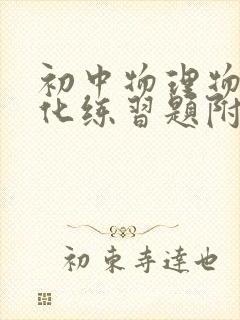 初中物理物
化练习题附
初东寺達也